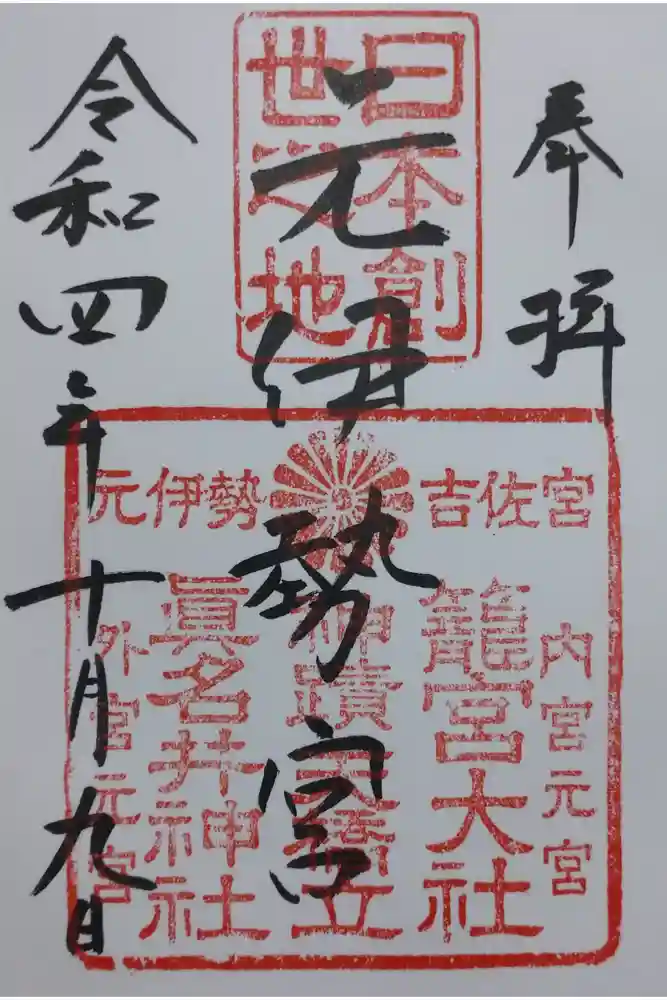 奉拝
日本創
世之地
元伊勢宮
令和四年十月九日
吉佐宮
元伊勢
内宮元宮
籠宮大社
神蹟天橋立
眞名井神社
外宮元宮